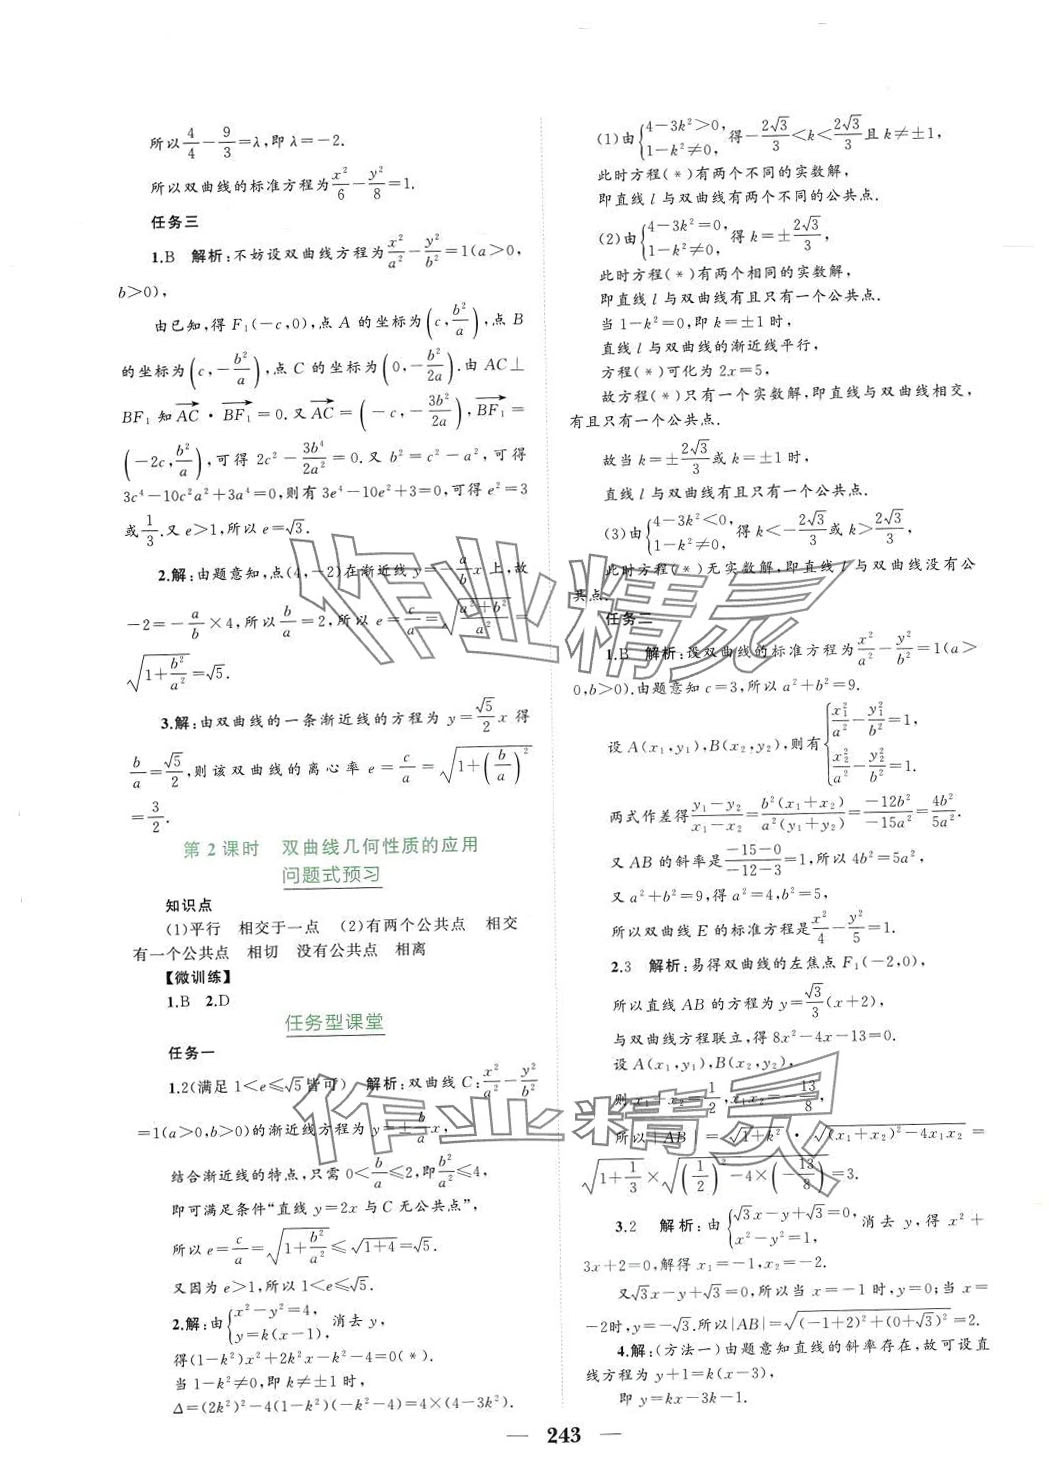 所以4/4－9/3＝λ,即λ＝－2.
所以双曲线的标准方程为x²/6－y²/8＝1.
任务三
1.B　解析:不妨设双曲线方程为x²/a²－y²/b²＝1(a＞0,
b＞0),
由已知,得F₁(－c,0),点A的坐标为(c,b²/a),点B
的坐标为(c,－b²/a),点C的坐标为(0,－b²/2a).由AC⊥
BF₁知AC→·BF₁→＝0.又AC→＝(－c,－3b²/2a),BF₁→＝
(－2c,b²/a),可得2c²－3b⁴/2a²＝0.又b²＝c²－a²,可得
3c⁴－10c²a²＋3a⁴＝0,则有3e⁴－10e²＋3＝0,可得e²＝3
或1/3.又e＞1,所以e＝√3.
2.解:由题意知,点(4,－2)在渐近线y＝－a/b x上,故
－2＝－a/b×4,所以b/a＝2,所以e＝c/a＝√((a²＋b²)/a²)＝
√(1＋b²/a²)＝√5.
3.解:由双曲线的一条渐近线的方程为y＝√5/2 x得
b/a＝√5/2,则该双曲线的离心率e＝c/a＝√(1＋(b/a)²)
＝3/2.
第2课时　双曲线几何性质的应用
问题式预习
知识点
(1)平行　相交于一点　(2)有两个公共点　相交
有一个公共点　相切　没有公共点　相离
【微训练】
1.B　2.D
任务型课堂
任务一
1.2(满足1＜e≤√5皆可)　解析:双曲线C:x²/a²－y²/b²
＝1(a＞0,b＞0)的渐近线方程为y＝±b/a x,
结合渐近线的特点,只需0＜b/a≤2,即b²/a²≤4,
即可满足条件“直线y＝2x与C无公共点”,
所以e＝c/a＝√(1＋b²/a²)≤√(1＋4)＝√5.
又因为e＞1,所以1＜e≤√5.
2.解:由{x²－y²＝4, y＝k(x－1),消去y,
得(1－k²)x²＋2k²x－k²－4＝0(*).
当1－k²≠0,即k≠±1时,
Δ＝(2k²)²－4(1－k²)(－k²－4)＝4×(4－3k²).
(1)由{4－3k²＞0, 1－k²≠0,得－2√3/3＜k＜2√3/3且k≠±1,
此时方程(*)有两个不同的实数解,
即直线l与双曲线有两个不同的公共点.
(2)由{4－3k²＝0, 1－k²≠0,得k＝±2√3/3,
此时方程(*)有两个相同的实数解,
即直线l与双曲线有且只有一个公共点.
当1－k²＝0,即k＝±1时,
直线l与双曲线的渐近线平行,
方程(*)可化为2x＝5,
故方程(*)只有一个实数解,即直线与双曲线相交,
有且只有一个公共点.
故当k＝±2√3/3或k＝±1时,
直线l与双曲线有且只有一个公共点.
(3)由{4－3k²＜0, 1－k²≠0,得k＜－2√3/3或k＞2√3/3,
此时方程(*)无实数解,即直线l与双曲线没有公
共点.
任务二
1.B　解析:设双曲线的标准方程为x²/a²－y²/b²＝1(a＞
0,b＞0).由题意知c＝3,所以a²＋b²＝9.
设A(x₁,y₁),B(x₂,y₂),则有{x₁²/a²－y₁²/b²＝1, x₂²/a²－y₂²/b²＝1.
两式作差得(y₁－y₂)/(x₁－x₂)＝b²(x₁＋x₂)/a²(y₁＋y₂)＝－12b²/－15a²＝4b²/5a².
又AB的斜率是(－15－0)/(－12－3)＝1,所以4b²＝5a²,
又a²＋b²＝9,得a²＝4,b²＝5,
所以双曲线E的标准方程是x²/4－y²/5＝1.
2.3　解析:易得双曲线的左焦点F₁(－2,0),
所以直线AB的方程为y＝√3/3(x＋2),
与双曲线方程联立,得8x²－4x－13＝0.
设A(x₁,y₁),B(x₂,y₂),
则x₁＋x₂＝1/2,x₁x₂＝－13/8,
所以|AB|＝√(1＋k²)·√((x₁＋x₂)²－4x₁x₂)＝
√(1＋1/3)×√((1/2)²－4×(－13/8))＝3.
3.2　解析:由{√3x－y＋√3＝0, x²－y²＝1,消去y,得x²＋
3x＋2＝0,解得x₁＝－1,x₂＝－2.
又√3x－y＋√3＝0,所以当x＝－1时,y＝0;当x＝
－2时,y＝－√3.所以|AB|＝√((－1＋2)²＋(0＋√3)²)＝2.
4.解:(方法一)由题意知直线的斜率存在,故可设直
线方程为y＋1＝k(x－3),
即y＝kx－3k－1.
— 243 —
作业精灵
作业精灵